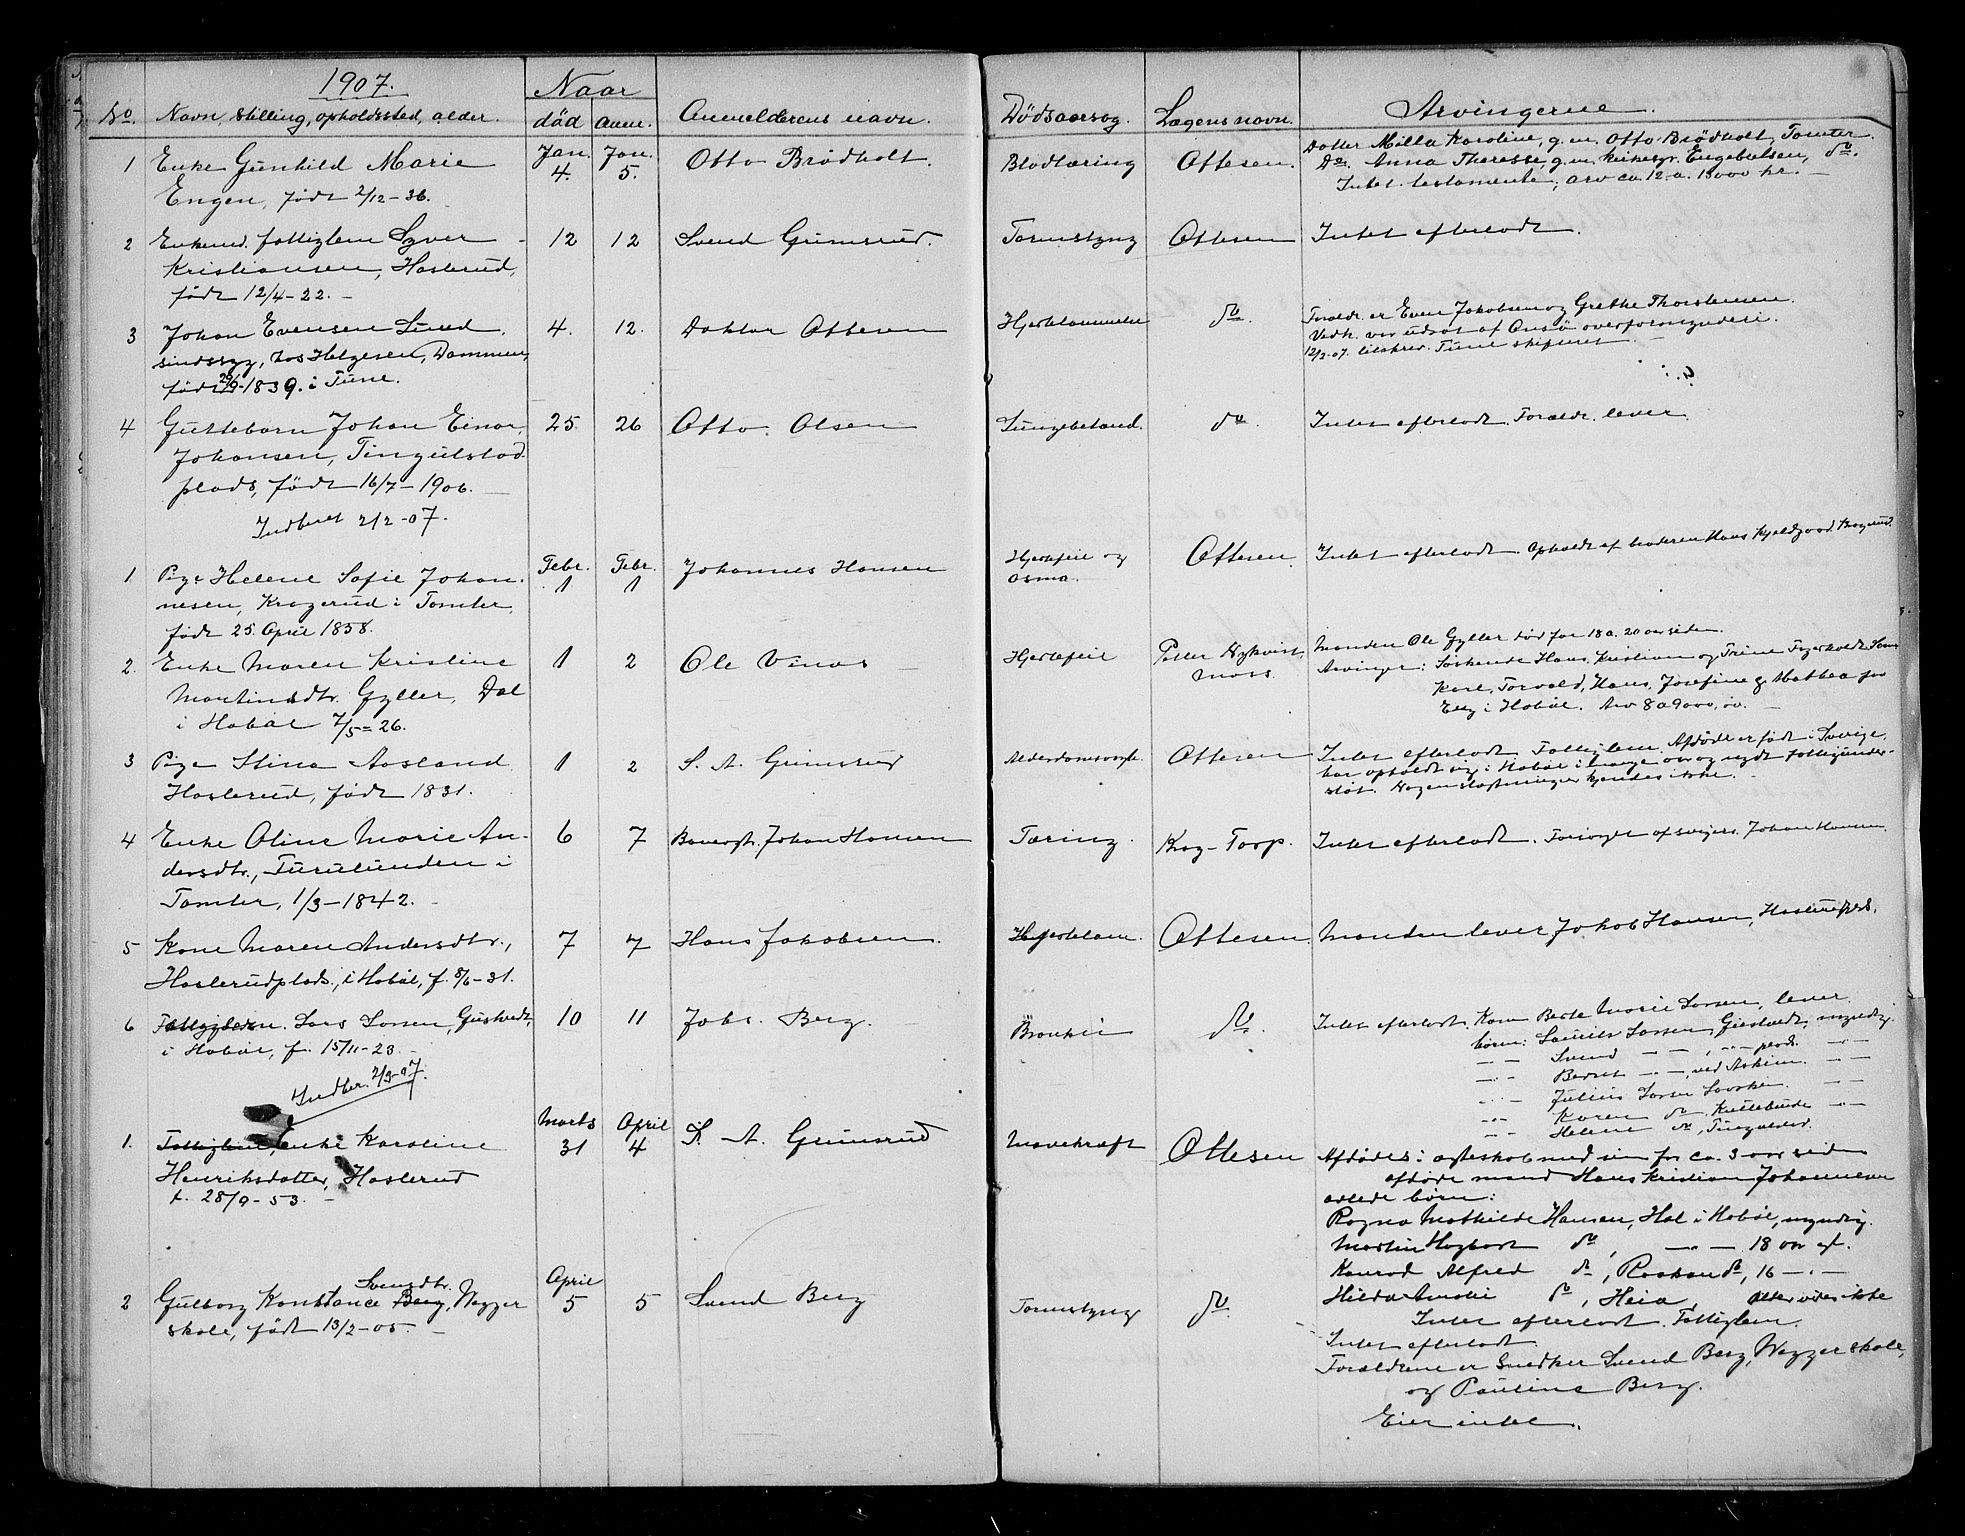 1907.
Naar
No. Navn, stilling, opholdssted, alder. død anm. Anmelderens navn. Dödsaarsag. Lægens navn. Arvingerne.
1 Enke Gunhild Marie Jan. 4. Jan. 5. Otto Brödholt. Blodtæring Ottesen. Datter Milla Karoline, g.m. Otto Brödholt, Tomter.
Engen, födt 2/12-36. Do. Anna Therese, g.m. kirkesgr. Engebretsen, do.
Intet testamente; arv ca. 12 a. 15000 kr.
2 Enkemd. fattiglem Syver 12 12 Svend Grimsrud. Tarmslyng Ottesen Intet efterladt.
Kristiansen, Haslerud,
födt 12/4-22.
3 Johan Evensen Lund, 4. 12. Doktor Ottesen Hjertelammelse do. Foræld. er Even Jakobsen og Grethe Thorstensen.
sindssyg, hos Helgesen, Dammen, Vedk. var udsat af Onsö overformynderi.
födt 29/9-1839. i Tune. 12/2-07. tilskrev. Tune skifteret
4 Guttebarn Johan Einar 25 26 Otto Olsen Lungebetænd. do. Intet efterladt. Foræld. lever
Johansen, Tingulstad
plads, födt 16/7-1906.
Indberet 2/2-07.
1 Pige Helene Sofie Johan- Febr. 1 Febr. 1 Johannes Hansen Hjertefeil og Ottesen. Intet efterladt. Opholdt af broderen Hans Kjeldgaard Kragerud.
nesen, Kragerud i Tomter, asma.
födt 25. April 1858.
2. Enke Maren Kristine 1 2 Ole Vinas Hjertefeil Nykvist, Manden Ole Gyller död for 18 a. 20 aar siden.
Martinsdtr. Gyller, Dal Moss Arvinger: Söskende Hans, Kristian og Trine
i Haböl 7/5-26. Karl, Torvald, Hans, Josefine & Mathea
Eng i Haböl. Arv 8 a 9000,00.
3 Pige Stina Aasland 1 2 S. A. Grimsrud Ottesen Intet efterladt. Fattiglem. Afdöde er födt i Sverige,
Haslerud, födt 1831. har opholdt sig i Haböl i mange aar og nydt fattigunder-
støt. Nogen slægtninger kjendes ikke.
4 Enke Oline Marie An- 6 7 Johan Hansen Tæring. Krag-Torp. Intet efterladt. Forsörget af svigers. Johan Hansen.
dersdtr., Furulunden i
Tomter, 1/3-1842.
5 Kone Maren Andersdtr., 7 7 Hans Jakobsen. Hjertelam. Ottesen. Manden lever Jakob Hansen,
Haslerudplads, i Haböl, f. 8/6-31.
6 Fattiglem. Lars Larsen, 10 11 Johs. Berg. Bronkit do. Intet efterladt. Kone Berte Marie Larsen, lever.
i Haböl, f. 15/11-23. börn: Larsen, myndig.
Svend — — , — plads. — —
Indber. 2/3-07. — — ved Askim. — —
Julius Larsen
Karen do,
Helene do,
1. Fattiglem, enke Karoline Marts 31 April 4 S. A. Grimsrud Mavekræft Ottesen Afdödes i ægteskab med sin for ca. 3 aar siden
Henriksdatter, Haslerud afdöde mand Hans Kristian Johannesen
f. 28/9-53. avlede börn:
Ragna Mathilde Hansen, Hal i Haböl, myndig.
Martin Hagbart do, — 18 aar gl.
Konrad Alfred do, 16 — —
2 Gulborg Konstance Svensdtr. Berg, Wegger April 5 5 Svend Berg Tarmslyng do. Hilda Amalie do, Heia, alder vides ikke
skole, födt 13/2-05. Intet efterladt. Fattiglem.
Intet efterladt.
Forældrene er Snedker Svend Berg, Wegger skole,
og Pauline Berg.
Eier intet.